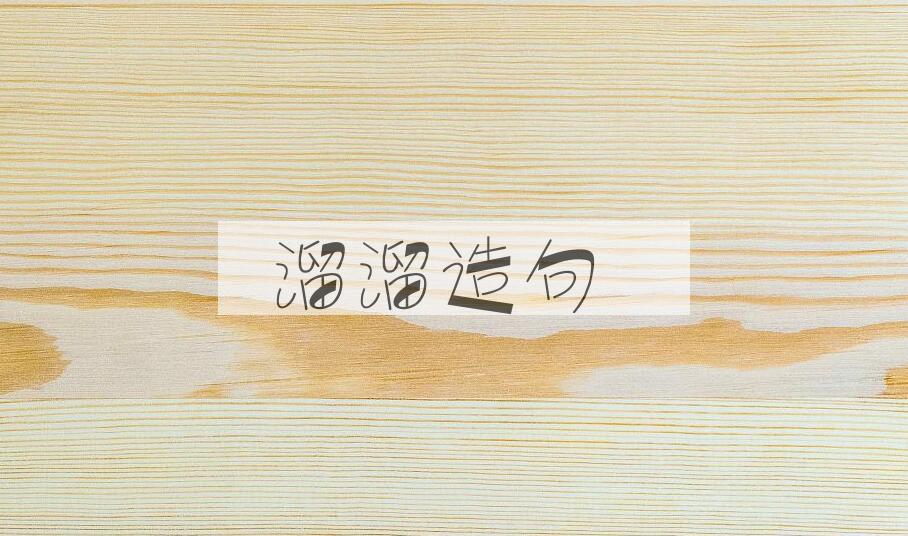 溜溜造句